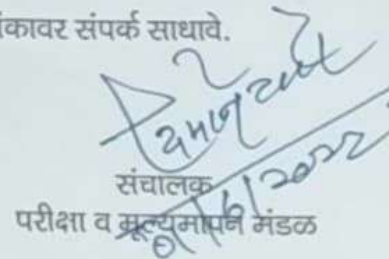 कावर संपर्क साधावे.
संचालक
परीक्षा व मूल्यमापन मंडळ